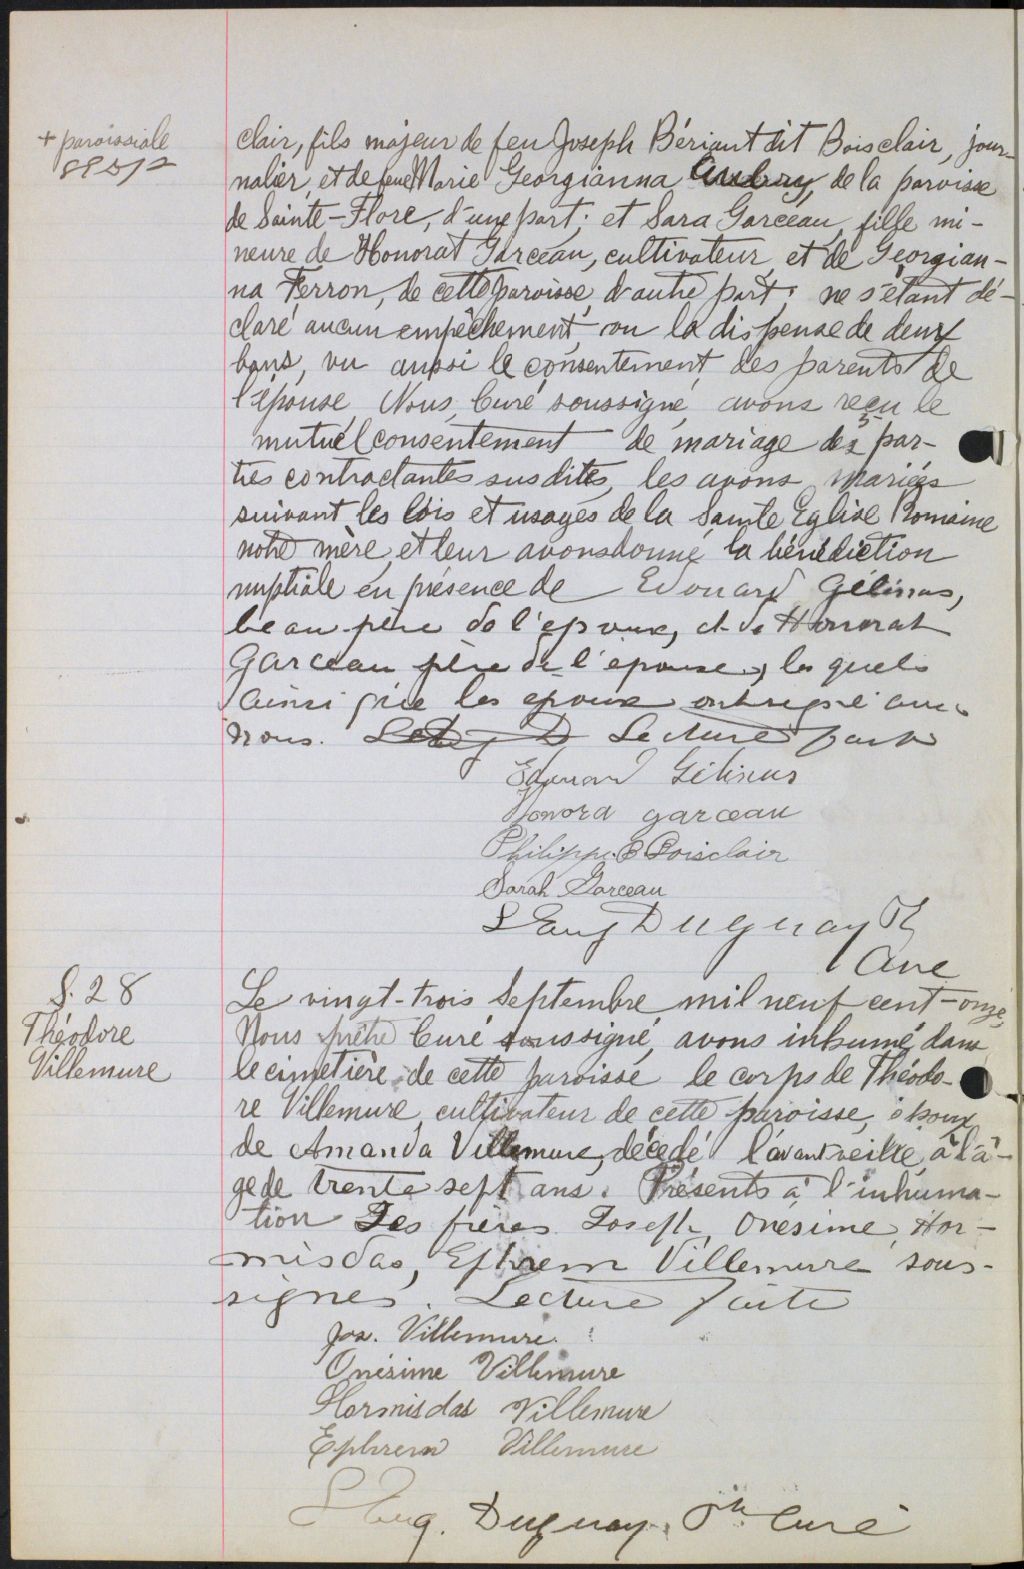 + paroissiale
clair, fils majeur de feu Joseph Bériault dit Boisclair, jour-
nalier, et de feue Marie Georgianna Aubry, de la paroisse
de Sainte-Flore, d'une part; et Sara Garceau, fille mi-
neure de Honorat Garceau, cultivateur, et de Georgian-
na Ferron, de cette paroisse, d'autre part; ne s'étant dé-
claré aucun empêchement, vu la dispense de deux
bans, vu aussi le consentement des parents de
l'épouse, Nous, Curé soussigné, avons reçu le
mutuel consentement de mariage des par-
ties contractantes susdites, les avons mariés
suivant les lois et usages de la Sainte Eglise Romaine
notre mère, et leur avons donné la bénédiction
nuptiale en présence de Edouard Gélinas,
beau-père de l'epoux, et de Honorat
Garceau père de l'épouse, lesquels
ainsi que les epoux ont signé avec
nous. Lecture faite
Edouard Gélinas
Honora garceau
Philippe B Boisclair
Sarah Garceau
L Eug Duguay Ptr
Curé
S. 28
Théodore
Villemure
Le vingt-trois Septembre mil neuf cent-onze,
Nous prêtre Curé soussigné, avons inhumé dans
le cimetière de cette paroisse le corps de Théodo-
re Villemure, cultivateur de cette paroisse, époux
de Amanda Villemure, décédé l'avant veille, à l'â-
ge de trente sept ans. Présents à l'inhuma-
tion Les frères Joseph, Onésime, Hor-
misdas, Ephrem Villemure sous-
signés. Lecture faite
Jos. Villemure
Onésime Villemure
Hormisdas Villemure
Ephrem Villemure
L Eug. Duguay, Ptr Curé